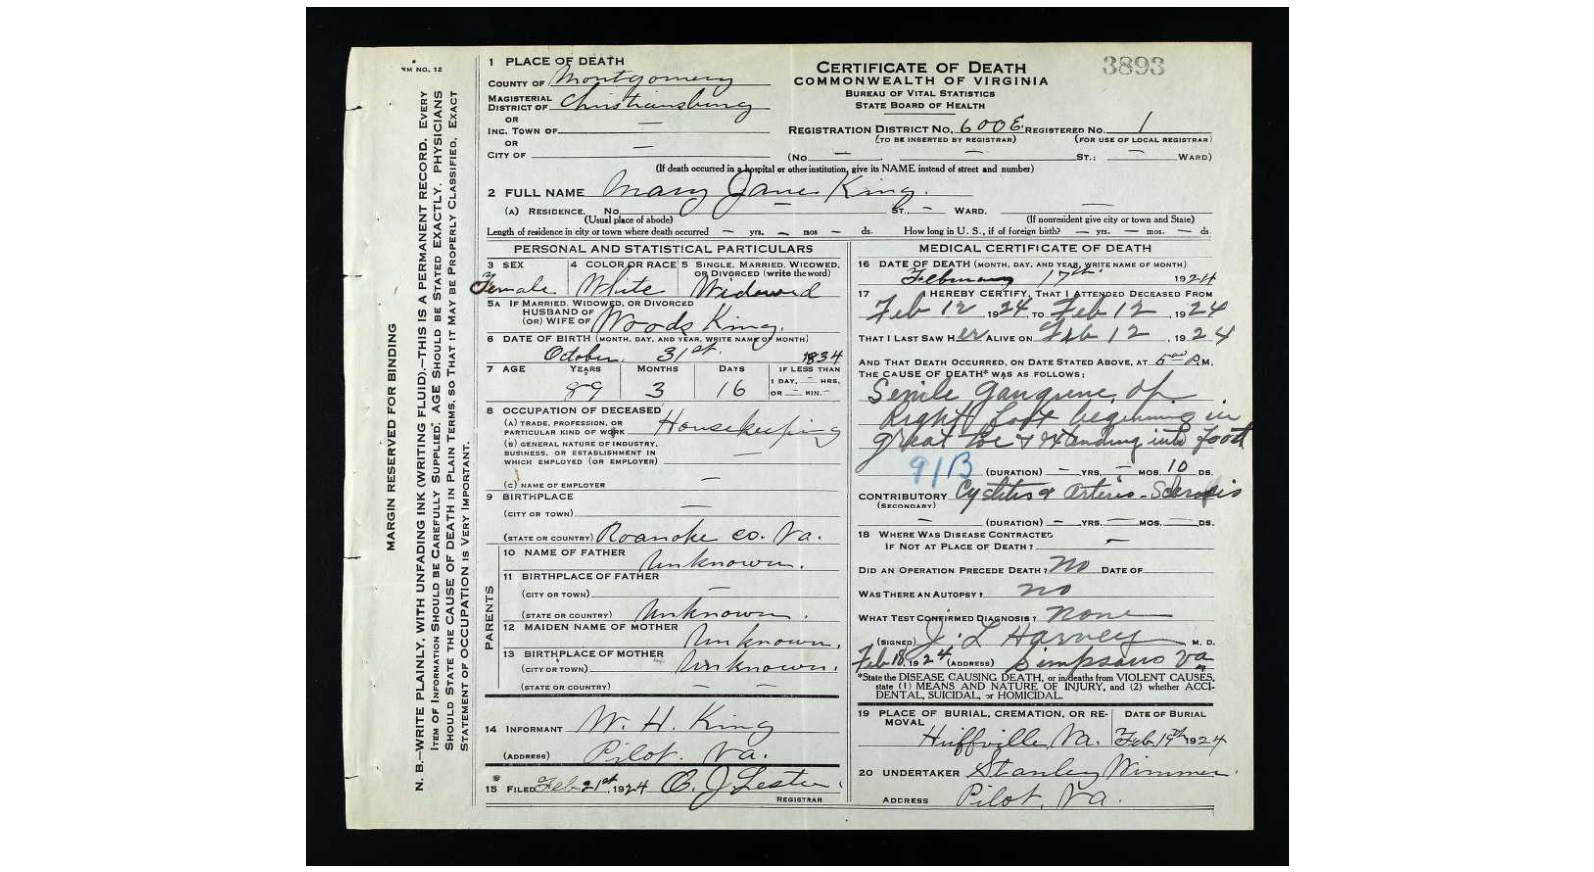 FORM NO. 12
MARGIN RESERVED FOR BINDING
N. B.—WRITE PLAINLY, WITH UNFADING INK (WRITING FLUID).—THIS IS A PERMANENT RECORD. EVERY
ITEM OF INFORMATION SHOULD BE CAREFULLY SUPPLIED. AGE SHOULD BE STATED EXACTLY. PHYSICIANS
SHOULD STATE THE CAUSE OF DEATH IN PLAIN TERMS, SO THAT IT MAY BE PROPERLY CLASSIFIED. EXACT
STATEMENT OF OCCUPATION IS VERY IMPORTANT.
1 PLACE OF DEATH
COUNTY OF Montgomery
MAGISTERIAL DISTRICT OF Christiansburg
OR
INC. TOWN OF —
OR
CITY OF —
CERTIFICATE OF DEATH
COMMONWEALTH OF VIRGINIA
BUREAU OF VITAL STATISTICS
STATE BOARD OF HEALTH
3893
REGISTRATION DISTRICT NO. 600E REGISTERED NO. 1
(TO BE INSERTED BY REGISTRAR) (FOR USE OF LOCAL REGISTRAR)
(NO. — — ST.; — WARD)
(If death occurred in a hospital or other institution, give its NAME instead of street and number)
2 FULL NAME Mary Jane King.
(A) RESIDENCE. NO. — ST., — WARD. —
(Usual place of abode) (If nonresident give city or town and State)
Length of residence in city or town where death occurred — yrs. — mos — ds. How long in U. S., if of foreign birth? — yrs. — mos. — ds.
PERSONAL AND STATISTICAL PARTICULARS
3 SEX 4 COLOR OR RACE 5 SINGLE, MARRIED, WIDOWED, OR DIVORCED (write the word)
Female White Widowed
5A IF MARRIED, WIDOWED, OR DIVORCED
HUSBAND OF
(OR) WIFE OF Woods King.
6 DATE OF BIRTH (MONTH, DAY, AND YEAR, WRITE NAME OF MONTH)
October 31st. 1834
7 AGE YEARS MONTHS DAYS IF LESS THAN
1 DAY, — HRS.
OR — MIN.
89 3 16
8 OCCUPATION OF DECEASED
(A) TRADE, PROFESSION, OR
PARTICULAR KIND OF WORK Housekeeping
(B) GENERAL NATURE OF INDUSTRY,
BUSINESS, OR ESTABLISHMENT IN
WHICH EMPLOYED (OR EMPLOYER) —
(C) NAME OF EMPLOYER —
9 BIRTHPLACE
(CITY OR TOWN) —
(STATE OR COUNTRY) Roanoke co. Va.
PARENTS
10 NAME OF FATHER Unknown.
11 BIRTHPLACE OF FATHER
(CITY OR TOWN) —
(STATE OR COUNTRY) Unknown.
12 MAIDEN NAME OF MOTHER Unknown.
13 BIRTHPLACE OF MOTHER
(CITY OR TOWN) Unknown.
(STATE OR COUNTRY) — —
14 INFORMANT W. H. King
(ADDRESS) Pilot. Va.
15 FILED Feb 21st, 1924 O. J. Lester
REGISTRAR
MEDICAL CERTIFICATE OF DEATH
16 DATE OF DEATH (MONTH, DAY, AND YEAR, WRITE NAME OF MONTH)
February 17th. 1924
17 I HEREBY CERTIFY, THAT I ATTENDED DECEASED FROM
Feb 12, 1924, TO Feb 12, 1924
THAT I LAST SAW HER ALIVE ON Feb 12, 1924
AND THAT DEATH OCCURRED, ON DATE STATED ABOVE, AT 5 M.
THE CAUSE OF DEATH* WAS AS FOLLOWS:
Senile gangrene of
Right foot beginning in
great toe & extending into foot
91B
(DURATION) — YRS. — MOS. 10 DS.
CONTRIBUTORY Cystitis & Arterio-Sclerosis
(SECONDARY)
— (DURATION) — YRS. — MOS. — DS.
18 WHERE WAS DISEASE CONTRACTED
IF NOT AT PLACE OF DEATH? —
DID AN OPERATION PRECEDE DEATH? No DATE OF
WAS THERE AN AUTOPSY? no
WHAT TEST CONFIRMED DIAGNOSIS? none
(SIGNED) J. L Harvey M. D.
Feb 18, 1924 (ADDRESS) Simpsons Va
*State the DISEASE CAUSING DEATH, or in deaths from VIOLENT CAUSES,
state (1) MEANS AND NATURE OF INJURY, and (2) whether ACCI-
DENTAL, SUICIDAL, or HOMICIDAL.
19 PLACE OF BURIAL, CREMATION, OR RE-
MOVAL DATE OF BURIAL
Huffville, Va. Feb 19th 1924
20 UNDERTAKER Stanley Wimmer.
ADDRESS Pilot, Va.